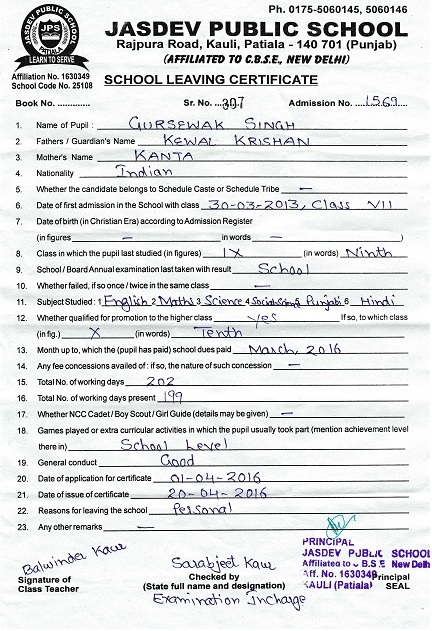 Ph. 0175-5060145, 5060146
JASDEV PUBLIC SCHOOL
JASDEV PUBLIC SCHOOL
JPS
PATIALA
LEARN TO SERVE
Rajpura Road, Kauli, Patiala - 140 701 (Punjab)
(AFFILIATED TO C.B.S.E., NEW DELHI)
Affiliation No. 1630349
School Code No. 25108
SCHOOL LEAVING CERTIFICATE
Book No. ............. Sr. No. ...307 Admission No. ....1569
1. Name of Pupil : GURSEWAK SINGH
2. Fathers / Guardian's Name KEWAL KRISHAN
3. Mother's Name KANTA
4. Nationality Indian
5. Whether the candidate belongs to Schedule Caste or Schedule Tribe —
6. Date of first admission in the School with class 30-03-2013, Class VII
7. Date of birth (in Christian Era) according to Admission Register
(in figures — in words — )
8. Class in which the pupil last studied (in figures) IX (in words) Ninth
9. School / Board Annual examination last taken with result School
10. Whether failed, if so once / twice in the same class —
11. Subject Studied : 1 English 2 Maths 3 Science 4 Social Science 5 Punjabi 6 Hindi
12. Whether qualified for promotion to the higher class yes If so, to which class
(in fig.) X (in words) Tenth
13. Month up to, which the (pupil has paid) school dues paid March, 2016
14. Any fee concessions availed of : if so, the nature of such concession —
15. Total No. of working days 202
16. Total No. of working days present 199
17. Whether NCC Cadet / Boy Scout / Girl Guide (details may be given) —
18. Games played or extra curricular activities in which the pupil usually took part (mention achievement level
there in) School Level
19. General conduct Good
20. Date of application for certificate 01-04-2016
21. Date of issue of certificate 20-04-2016
22. Reasons for leaving the school Personal
23. Any other remarks —
Balwinder Kaur
Signature of
Class Teacher
Sarabjeet Kaur
Checked by
(State full name and designation)
Examination Incharge
PRINCIPAL
JASDEV PUBLIC SCHOOL
Affiliated to C.B.S.E. New Delh
Aff. No. 1630349
KAULI (Patiala)
Principal
SEAL